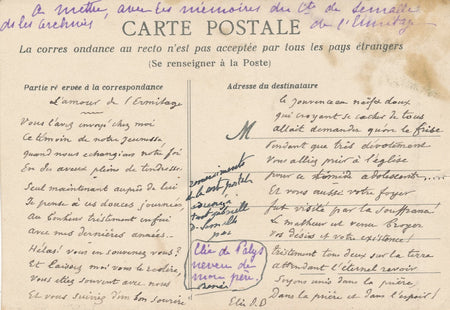 A mettre, avec les mémoires du Cte de Semallé
ds les archives de l'Ermitage
CARTE POSTALE
La corres ondance au recto n'est pas acceptée par tous les pays étrangers
(Se renseigner à la Poste)
Partie ré ervée à la correspondance
L'amour de l'Ermitage
Vous l'avez envoyé chez moi
Ce témoin de notre jeunesse
quand nous échangions notre foi
En des aveux pleins de tendresse.
Seul maintenant auprès de lui
Je pense à ces douces journées
Au bonheur tristement enfui
avec mes dernières années.
Hélas! vous en souvenez vous?
Et laissez moi vous le redire,
vous étiez souvent avec nous
Et vous suiviez d'un bon sourire
Adresse du destinataire
M
Le jouvenceau naïf et doux
qui croyant se cacher de tous
allait demander quon le frise
Pendant que très dévotement
Vous alliez prier à l'église
pour ce timide adolescent...
Et vous aussi votre foyer
fut visité par la souffrance!
Le malheur est venu broyer
Vos désirs et votre existence!
tristement tou deux sur la terre
attendant l'éternel revoir
Soyons unis dans la prière,
Dans la prière et dans l'espoir!
Elie D. P
Elie de Palys
neveu de
mon père